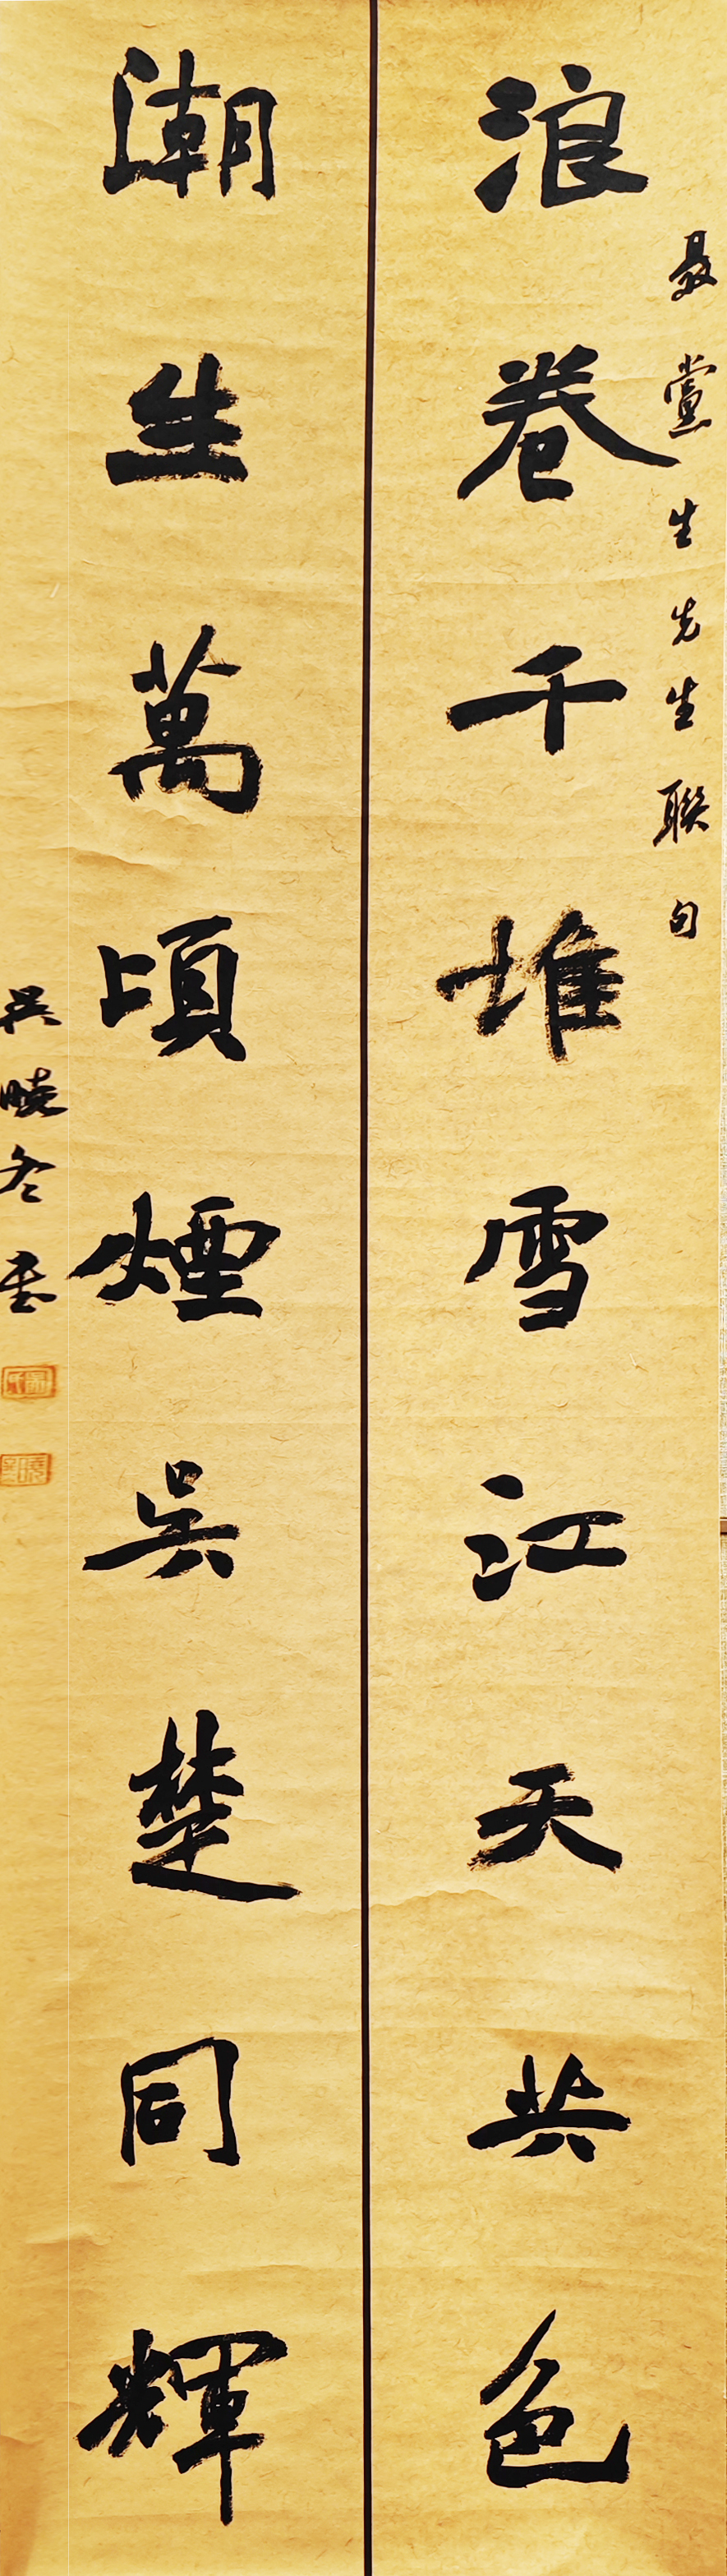 聂黨生先生聯句
浪卷千堆雪江天共色
潮生萬頃煙吳楚同輝
吳曉冬書